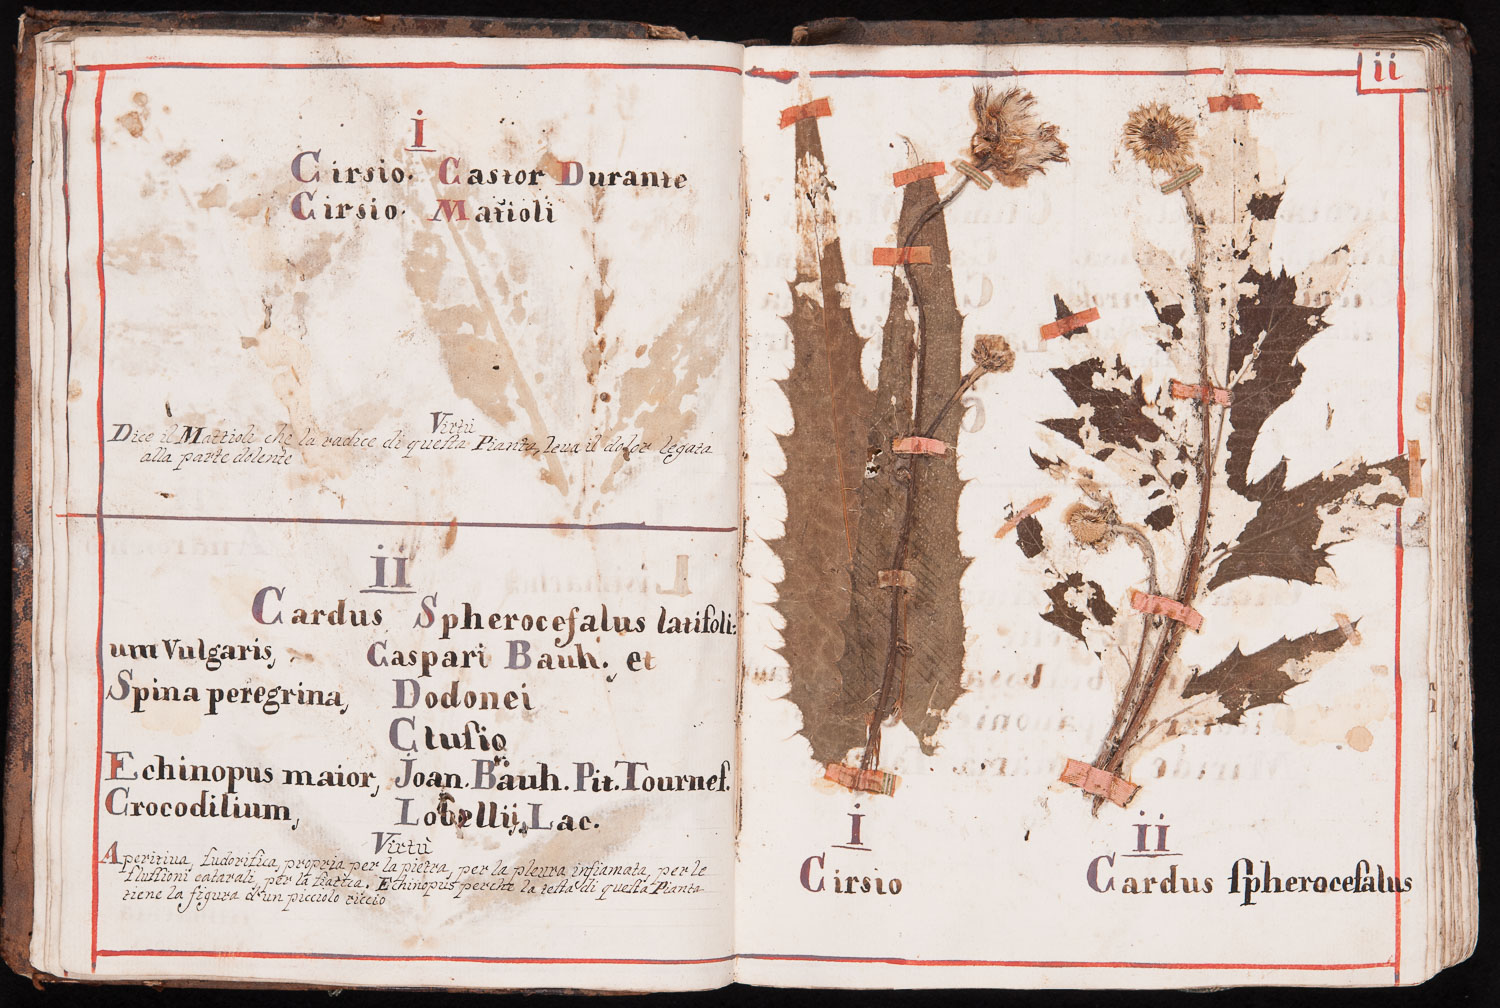 i
Cirsio. Castor Durante
Cirsio. Matioli
Virtù
Dice il Mattioli che la radice di questa Pianta, leua il dolor legata
alla parte dolente
ii
Cardus Spherocefalus latifoli:
um Vulgaris, Caspari Bauh. et
Spina peregrina, Dodonei
Clusio
Echinopus maior, Joan. Bauh. Pit. Tournef.
Crocodilium, Lobellij, Lac.
Virtù
Aperitiua, sudorifica, propria per la pietra, per la pleura infiamata, per le
flussioni catarali, per la Echinopus perche la testa di questa Pianta
tiene la figura d'un picciolo riccio
ii
i
Cirsio
ii
Cardus spherocefalus